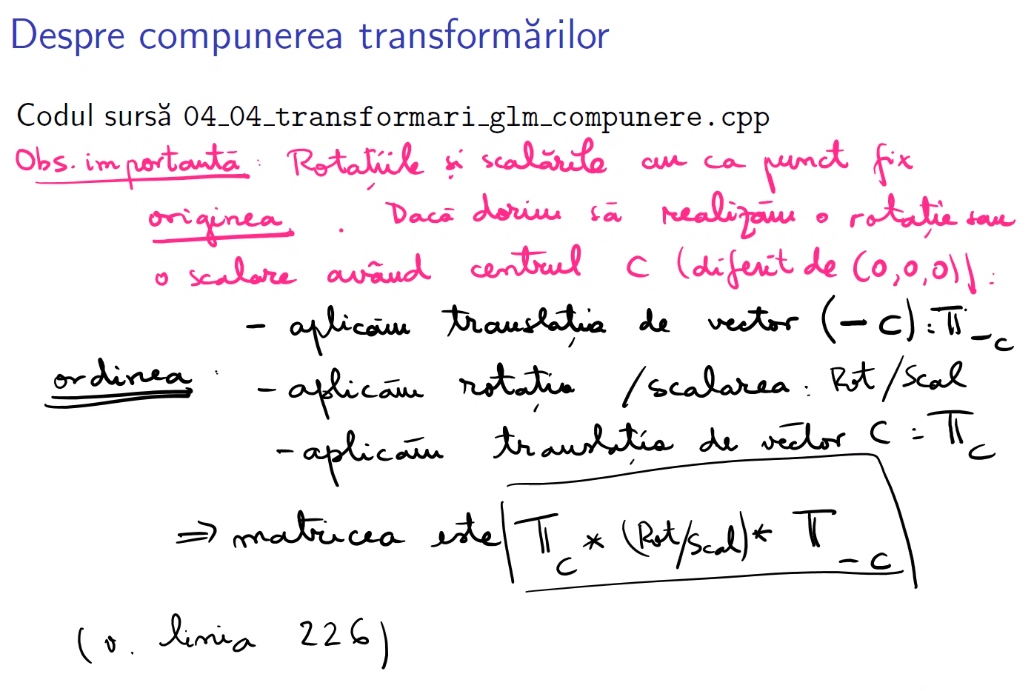 Despre compunerea transformărilor
Codul sursă 04_04_transformari_glm_compunere.cpp
Obs. importantă: Rotațiile și scalările au ca punct fix
originea. Dacă dorim să realizăm o rotație sau
o scalare având centrul C (diferit de (0,0,0)):
- aplicăm translația de vector (-C): T_-C
ordinea: - aplicăm rotația /scalarea: Rot/Scal
- aplicăm translația de vector C: T_C
⇒ matricea este T_C * (Rot/Scal) * T_-C
(v. linia 226)